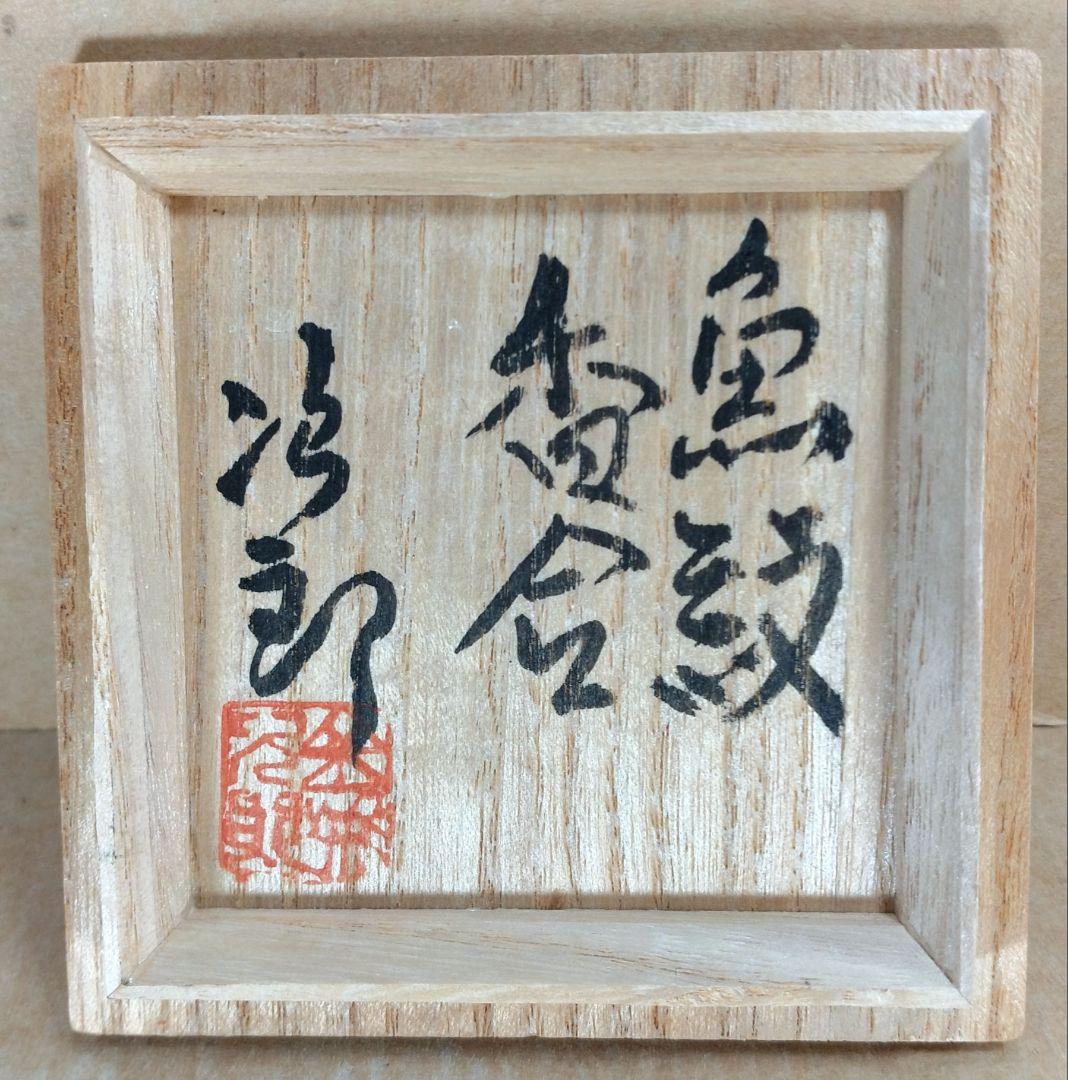 魚紋
香合
次郎